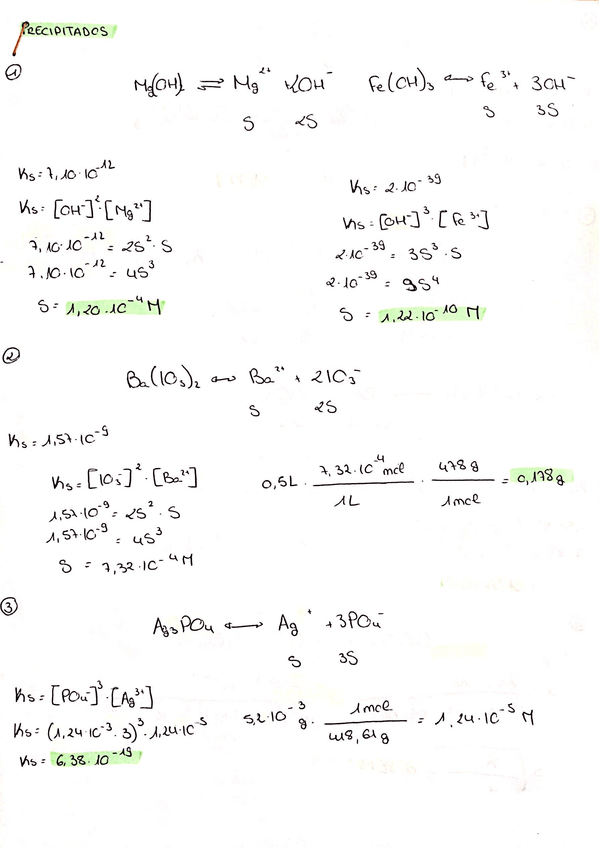 PRECIPITADOS
①
Mg(OH)₂ ⇌ Mg²⁺ + 2OH⁻
S 2S
Fe(OH)₃ ↔ Fe³⁺ + 3OH⁻
S 3S
Ks = 7,10·10⁻¹²
Ks = [OH⁻]²·[Mg²⁺]
7,10·10⁻¹² = 2S²·S
7,10·10⁻¹² = 4S³
S = 1,20·10⁻⁴ M
Ks = 2·10⁻³⁹
Ks = [OH⁻]³·[Fe³⁺]
2·10⁻³⁹ = 3S³·S
2·10⁻³⁹ = 9S⁴
S = 1,22·10⁻¹⁰ M
②
Ba(IO₃)₂ ↔ Ba²⁺ + 2IO₃⁻
S 2S
Ks = 1,57·10⁻⁹
Ks = [IO₃⁻]²·[Ba²⁺]
1,57·10⁻⁹ = 2S²·S
1,57·10⁻⁹ = 4S³
S = 7,32·10⁻⁴ M
0,5L · 7,32·10⁻⁴ mol / 1L · 478 g / 1mol = 0,178 g
③
Ag₃PO₄ ↔ Ag⁺ + 3PO₄⁻
S 3S
Ks = [PO₄⁻]³·[Ag³⁺]
Ks = (1,24·10⁻³·3)³·1,24·10⁻⁵
Ks = 6,38·10⁻¹⁹
5,2·10⁻³ g · 1mol / 418,61 g = 1,24·10⁻⁵ M